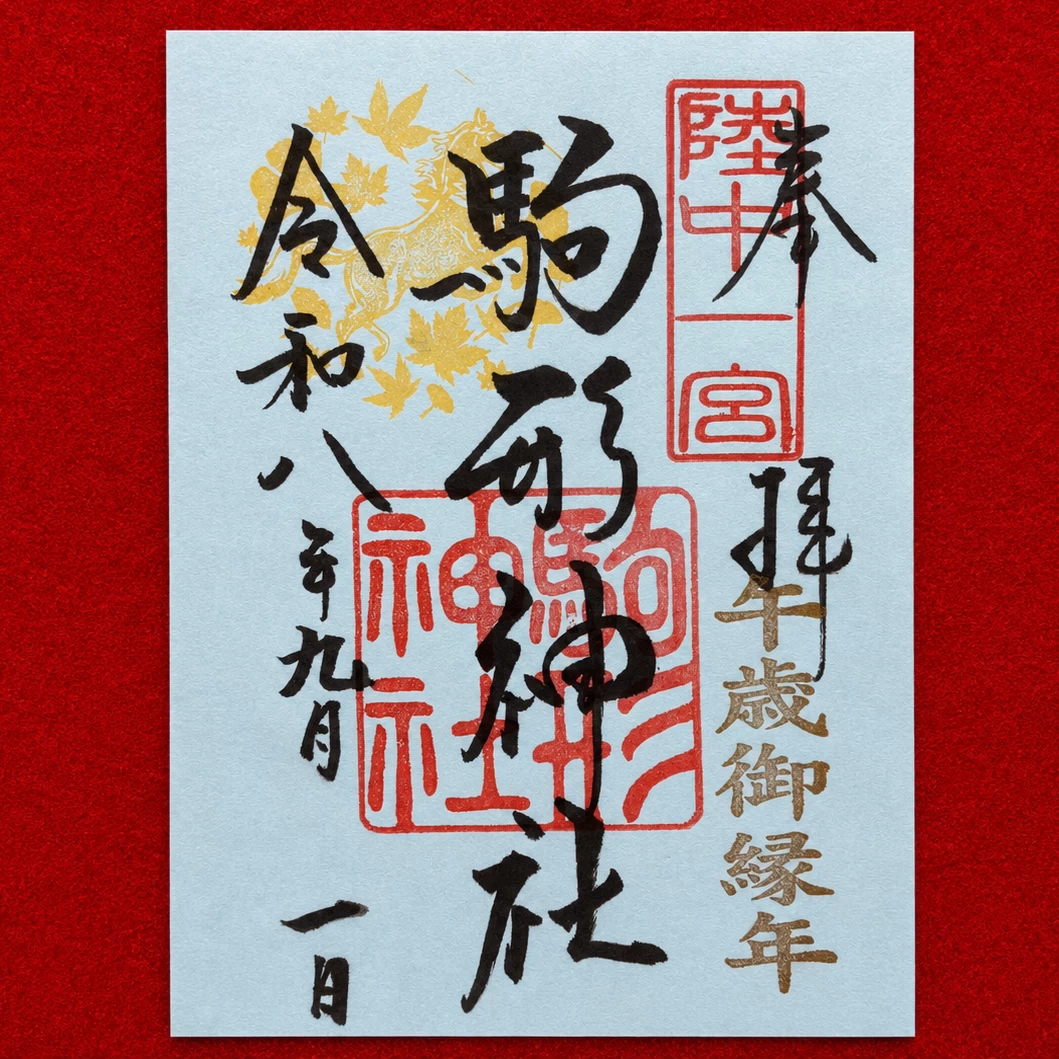 奉拝
陸中一宮
午歳御縁年
駒形神社
駒形
神社
令和八年九月一日